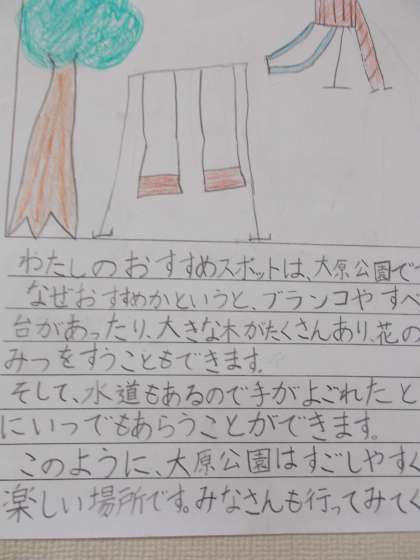 わたしのおすすめスポットは、大原公園で
なぜおすすめかというと、ブランコやすべ
台があったり、大きな木がたくさんあり、花の
みつをすうこともできます。
そして、水道もあるので手がよごれたと
にいつでもあらうことができます。
このように、大原公園はすごしやすく
楽しい場所です。みなさんも行ってみてく